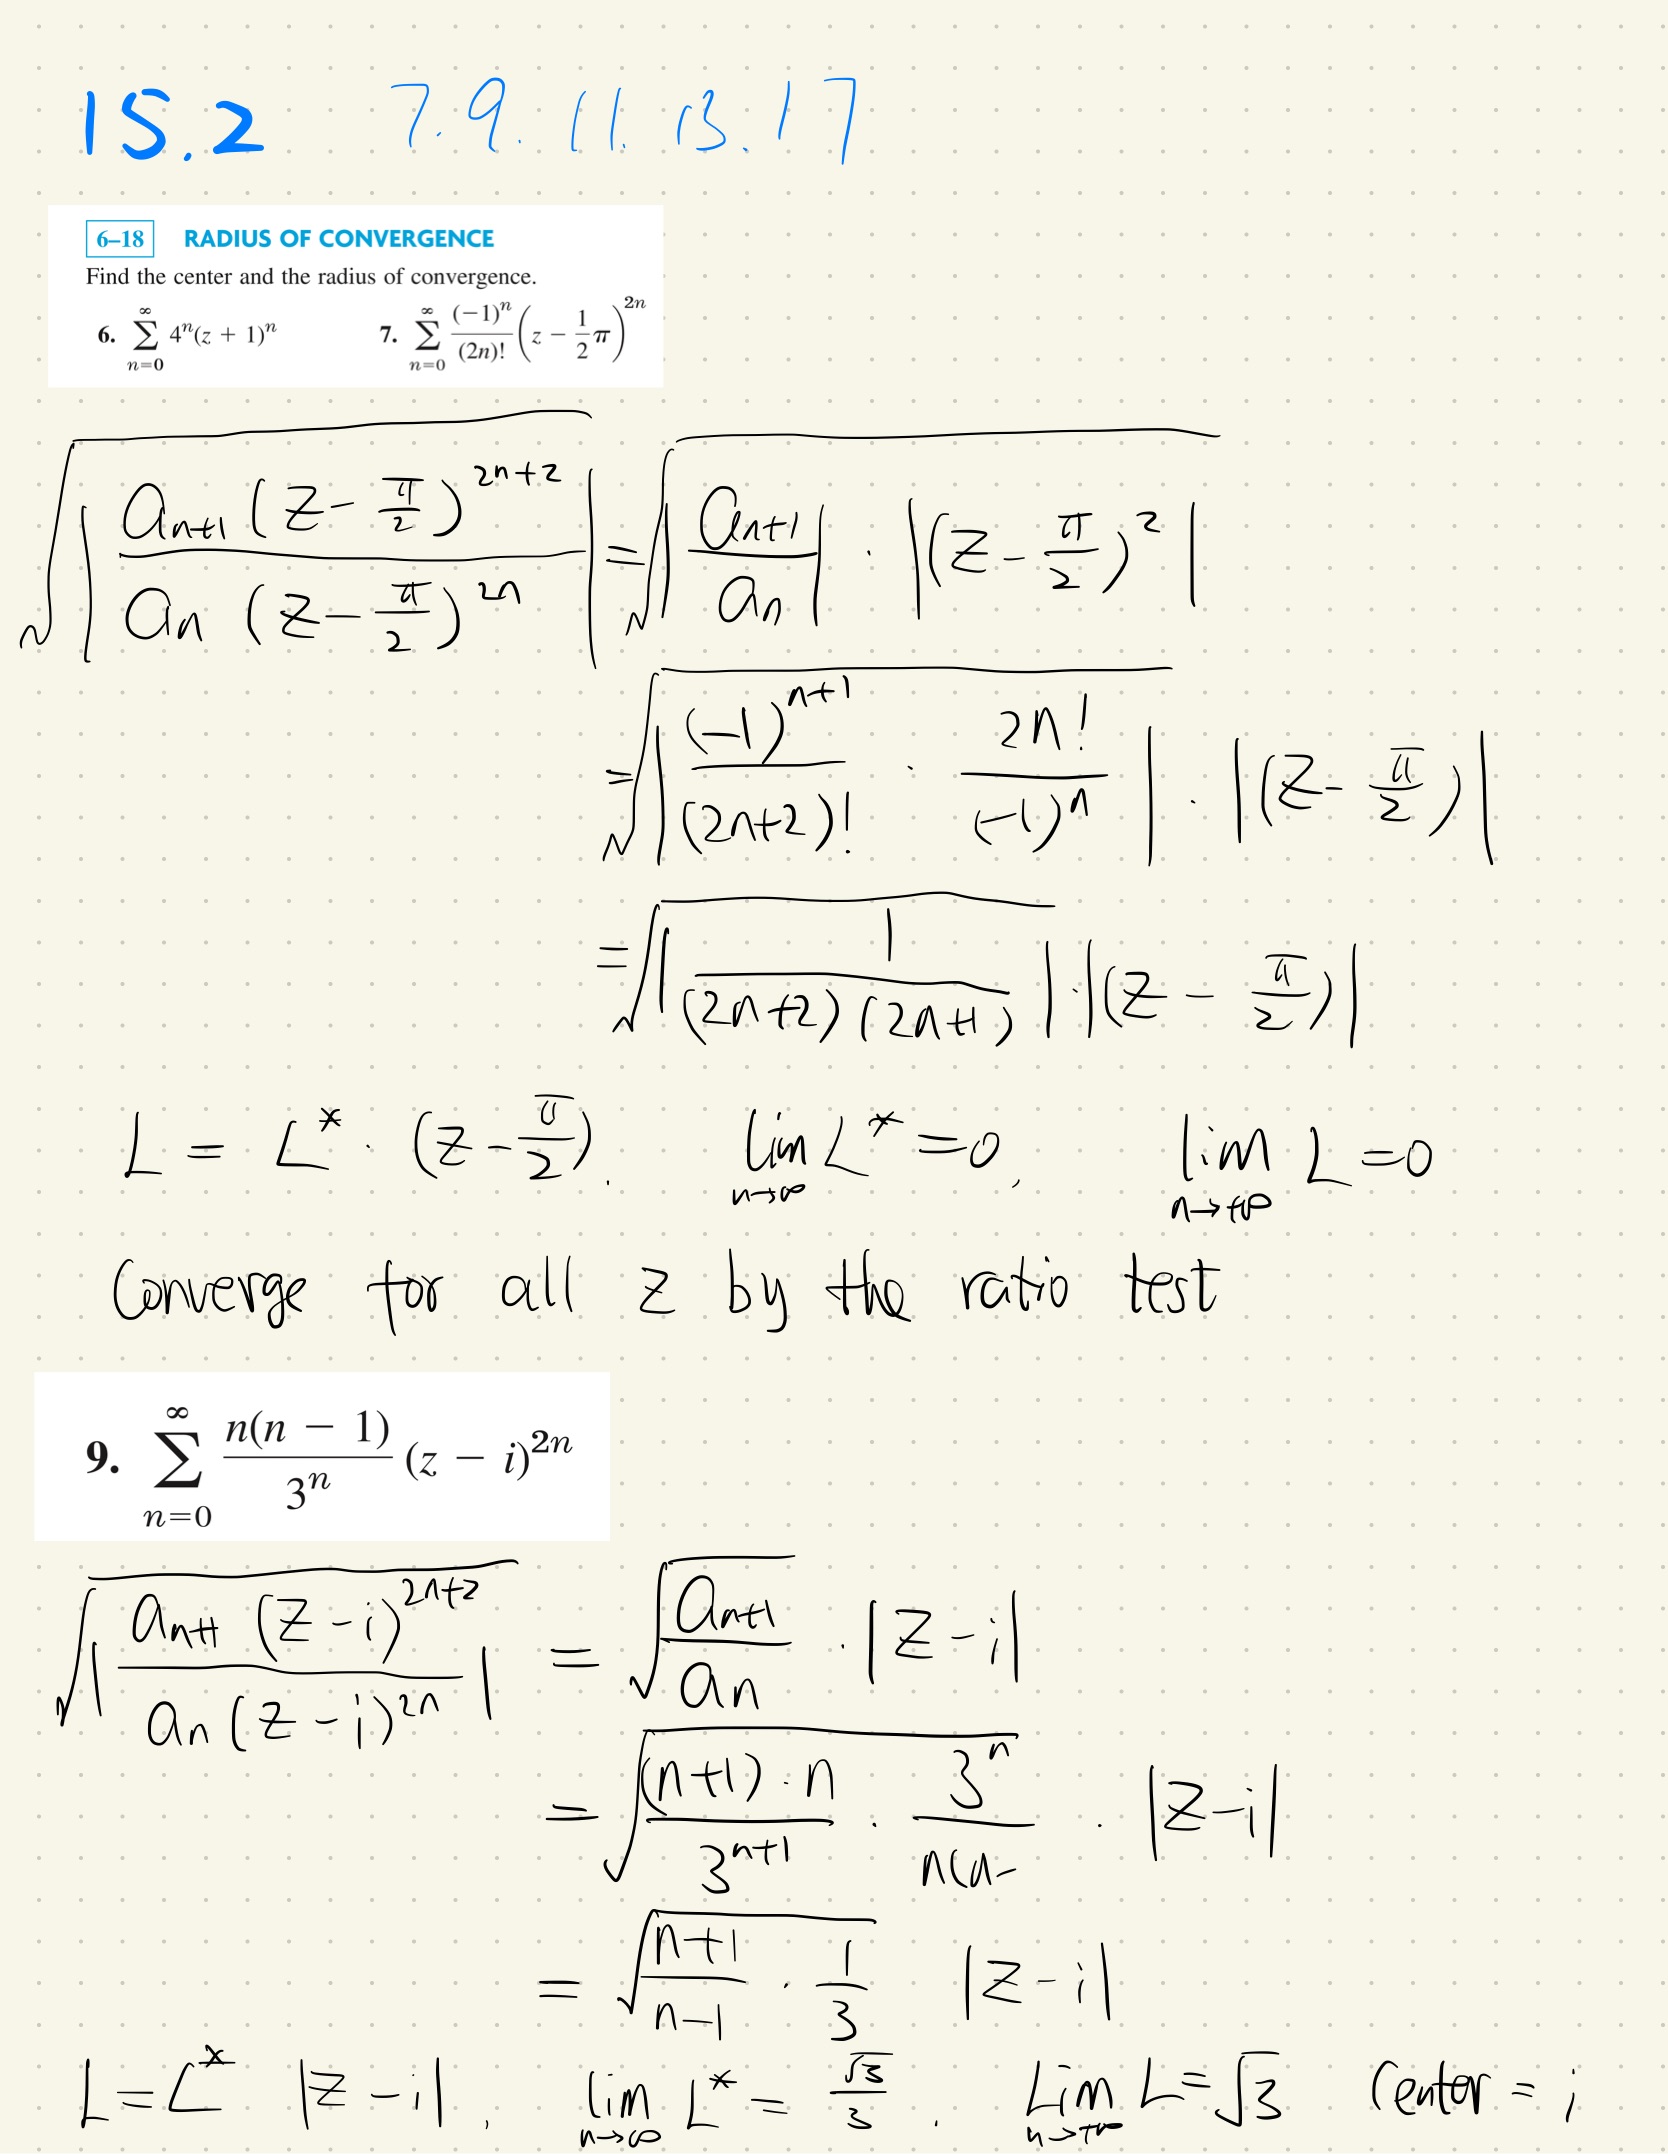 15.2 7.9.11.13.17
6–18 RADIUS OF CONVERGENCE
Find the center and the radius of convergence.
6. ∑_{n=0}^{∞} 4^n(z + 1)^n 7. ∑_{n=0}^{∞} (−1)^n/(2n)! (z − 1/2 π)^{2n}
√|a_{n+1}(z−π/2)^{2n+2} / a_n(z−π/2)^{2n}| = √|a_{n+1}/a_n| · |(z−π/2)^2|
= √|(−1)^{n+1}/(2n+2)! · 2n!/(−1)^n| · |(z−π/2)|
= √|1/((2n+2)(2n+1))| · |(z−π/2)|
L = L* · (z−π/2). lim_{n→∞} L* = 0, lim_{n→+∞} L = 0
Converge for all z by the ratio test
9. ∑_{n=0}^{∞} n(n − 1)/3^n (z − i)^{2n}
√|a_{n+1}(z−i)^{2n+2} / a_n(z−i)^{2n}| = √(a_{n+1}/a_n) · |z−i|
= √((n+1)·n/3^{n+1} · 3^n/n(n−) · |z−i|
= √((n+1)/(n−1) · 1/3) |z−i|
L = L* |z−i|, lim_{n→∞} L* = √3/3. Lim_{n→+∞} L = √3 Center = i